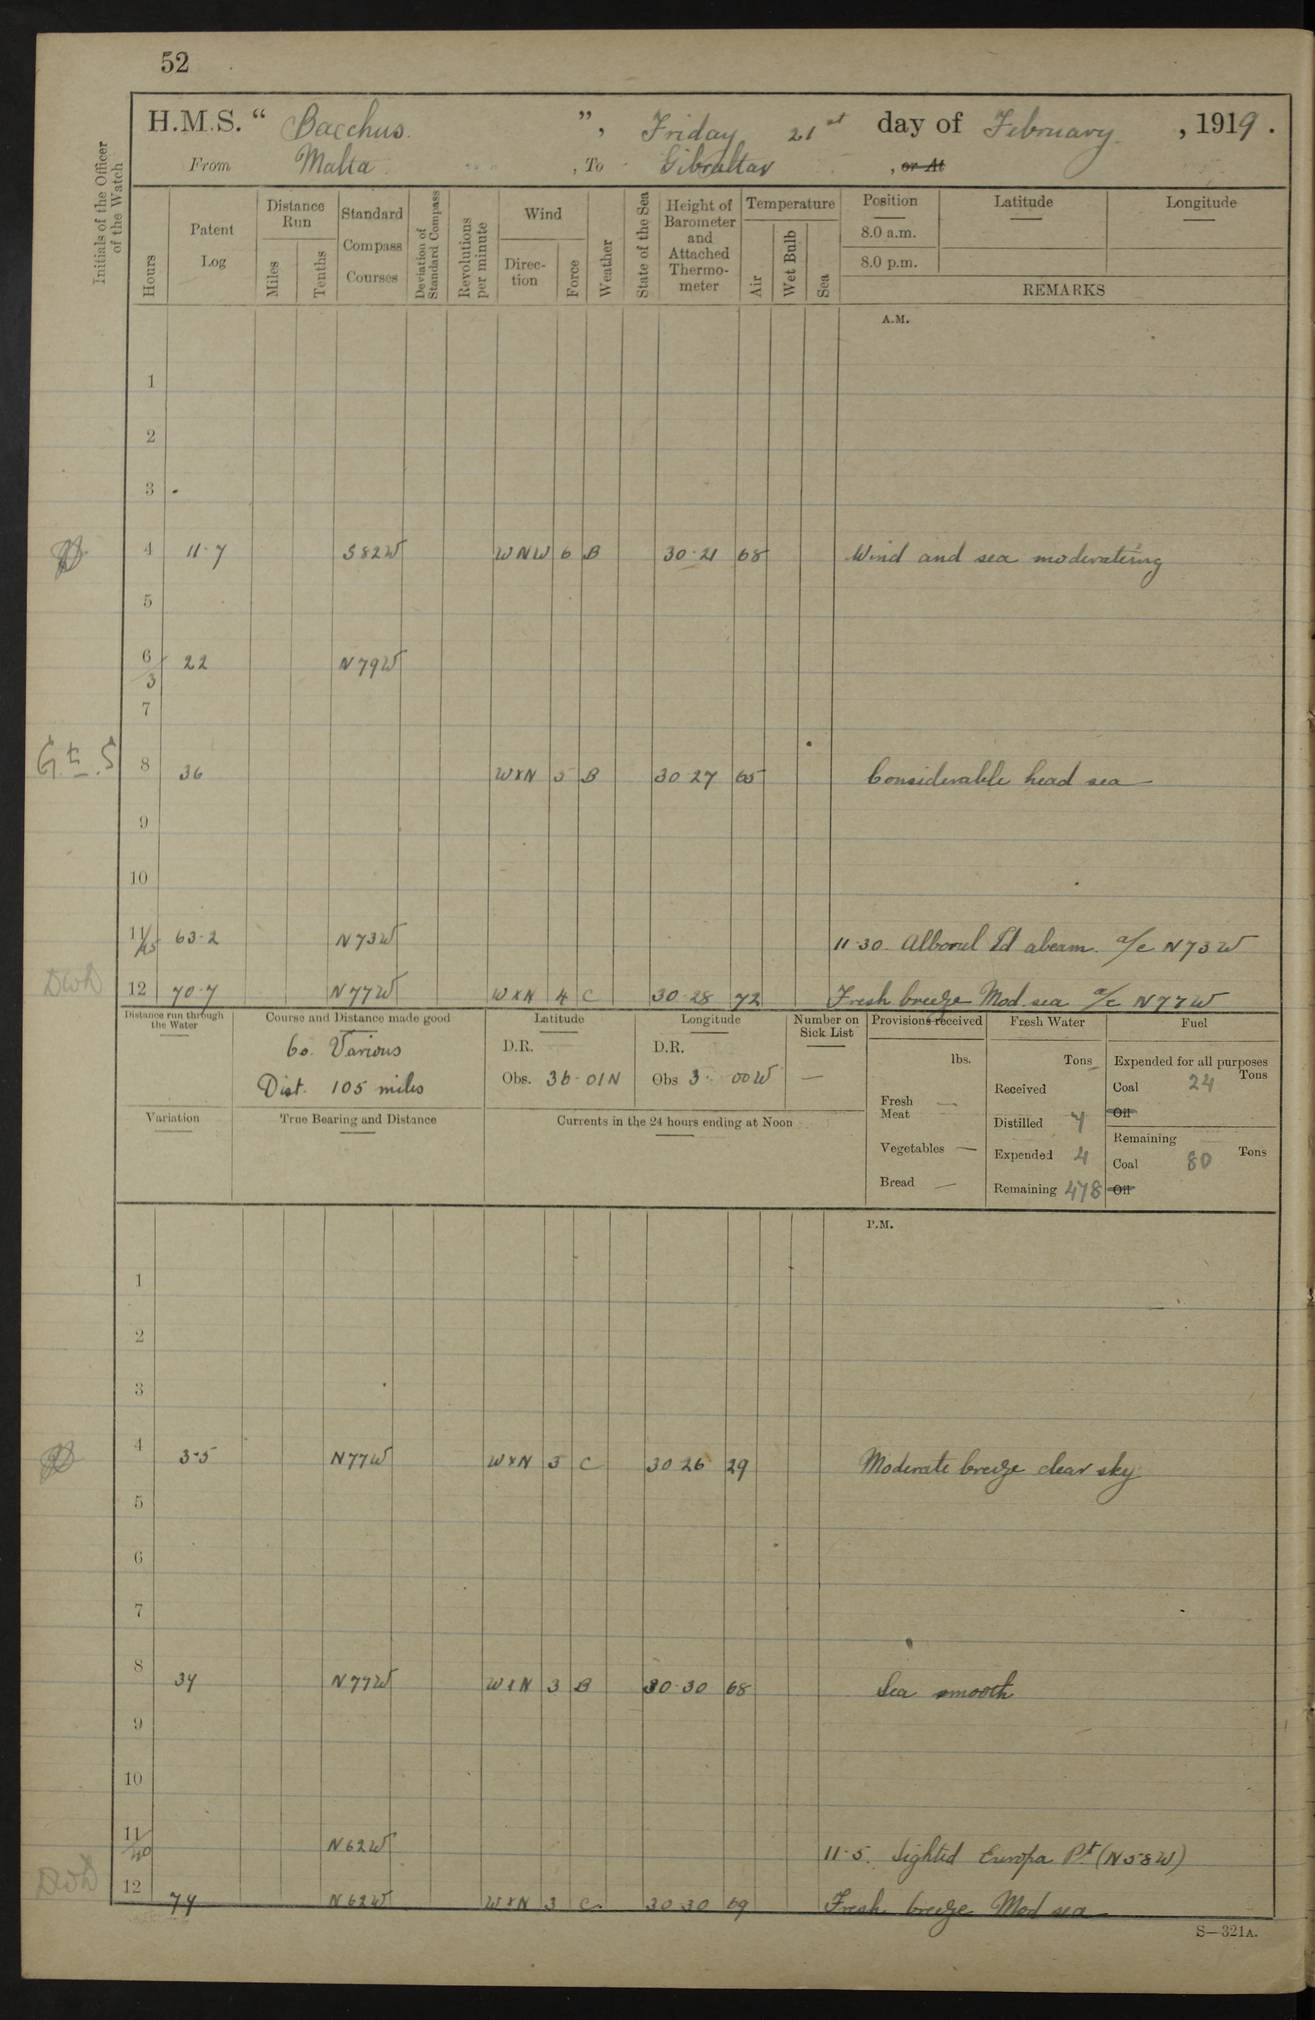 52
H.M.S. “ Bacchus ”, Friday 21st day of February, 1919.
From Malta, To Gibraltar, or At
Initials of the Officer of the Watch
Hours
Patent Log
Distance Run
Miles
Tenths
Standard Compass Courses
Deviation of Standard Compass
Revolutions per minute
Wind
Direc-tion
Force
Weather
State of the Sea
Height of Barometer and Attached Thermo-meter
Temperature
Air
Wet Bulb
Sea
Position
8.0 a.m.
8.0 p.m.
Latitude
Longitude
REMARKS
A.M.
1
2
3
4 11·7 S82W WNW 6 B 30·21 68 Wind and sea moderating
5
6/3 22 N79W
7
8 36 WxN 5 B 30·27 65 Considerable head sea
9
10
11/45 63·2 N73W 11·30. Alboral Id abeam. a/c N73W
DWD 12 70·7 N77W WxN 4 C 30·28 72 Fresh breeze Mod. sea a/c N77W
Distance run through the Water
Course and Distance made good
Co. Various
Dist. 105 miles
Latitude
D.R.
Obs. 36·01N
Longitude
D.R.
Obs 3· 00W
Number on Sick List
—
Provisions received
lbs.
Fresh Meat —
Vegetables —
Bread —
Fresh Water
Tons
Received
Distilled 4
Expended 4
Remaining 478
Fuel
Expended for all purposes
Tons
Coal 24
Oil
Remaining
Tons
Coal 80
Oil
Variation
True Bearing and Distance
Currents in the 24 hours ending at Noon
P.M.
1
2
3
4 3·5 N77W WxN 3 C 30·26 29 Moderate breeze clear sky
5
6
7
8 34 N77W WxN 3 B 30·30 68 Sea smooth
9
10
11/40 N62W 11·5. Sighted Europa Pt (N58W)
DWD 12 74 N62W WxN 3 C 30·30 69 Fresh breeze Mod sea
S—321A.